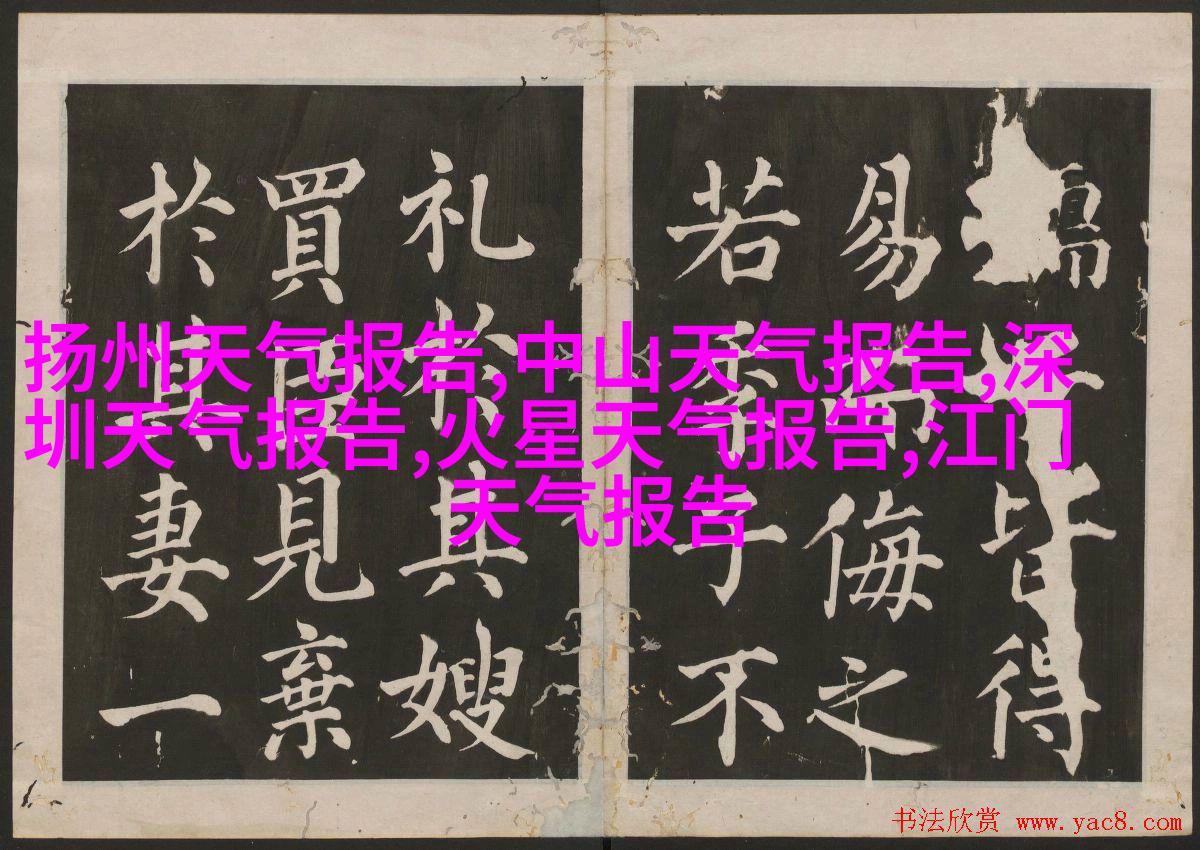 皆得
易而侮之
若季子不
礼於其嫂
買臣見棄
於其妻一
扬州天气报告,中山天气报告,深
圳天气报告,火星天气报告,江门
天气报告
书法欣赏 www.yac8.com